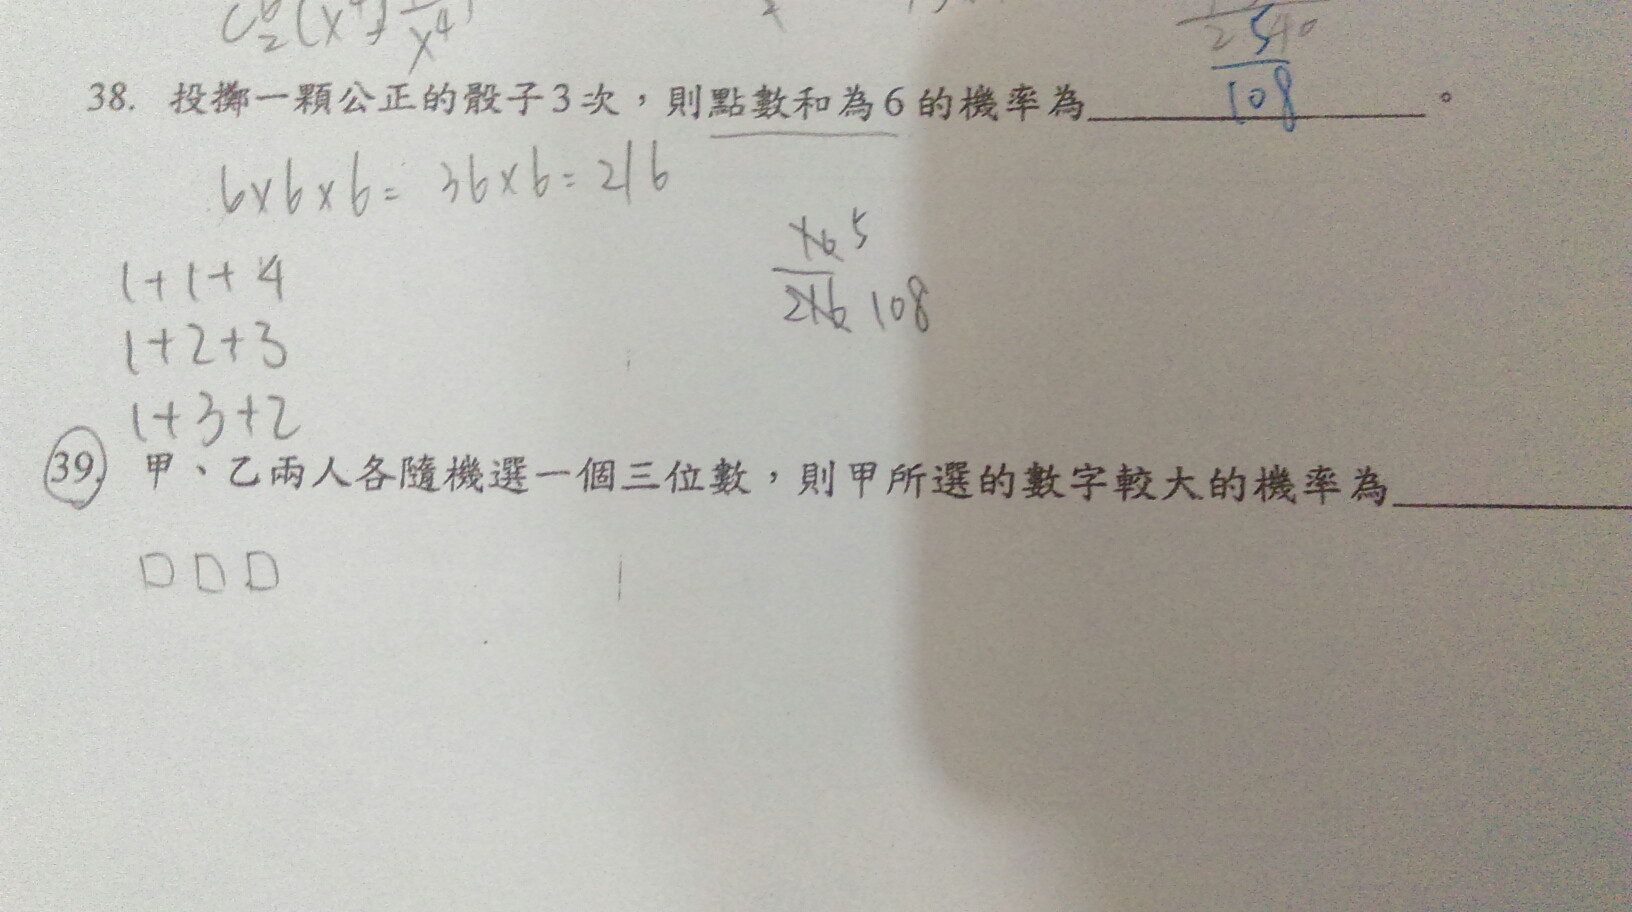 C₂⁶(x⁴) 1/x⁴
2 540
5
108
38. 投擲一顆公正的骰子3次，則點數和為6的機率為____________。
6×6×6= 36×6=216
10 5
216 108
1+1+4
1+2+3
1+3+2
39. 甲、乙兩人各隨機選一個三位數，則甲所選的數字較大的機率為____________
□□□